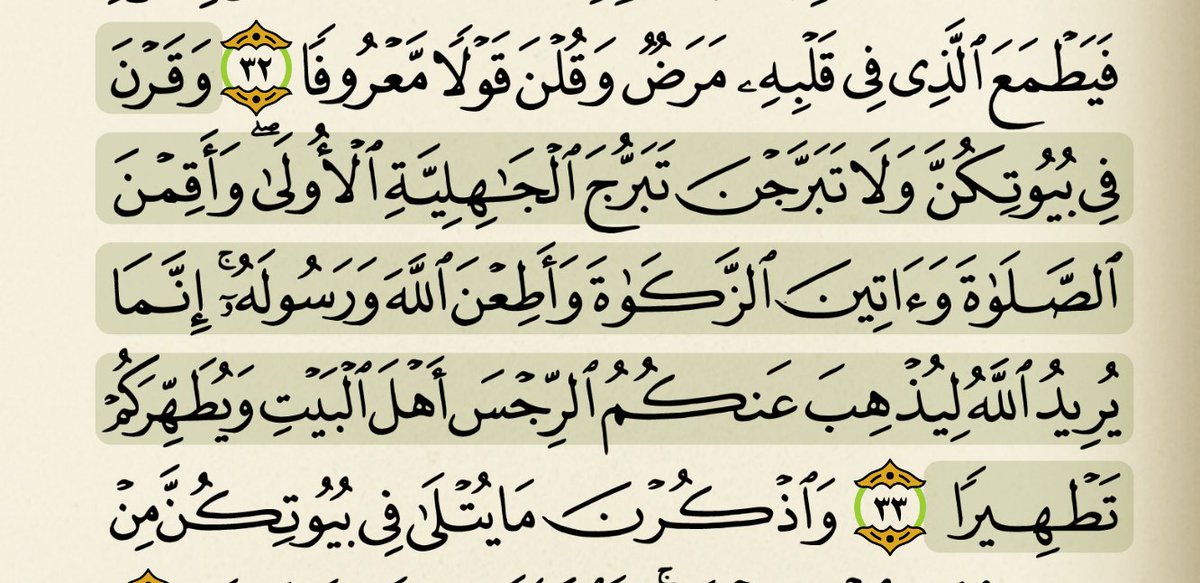 فَيَطْمَعَ ٱلَّذِى فِى قَلْبِهِۦ مَرَضٌ وَقُلْنَ قَوْلًا مَّعْرُوفًا ٣٢ وَقَرْنَ
فِى بُيُوتِكُنَّ وَلَا تَبَرَّجْنَ تَبَرُّجَ ٱلْجَـٰهِلِيَّةِ ٱلْأُولَىٰ ۖ وَأَقِمْنَ
ٱلصَّلَوٰةَ وَءَاتِينَ ٱلزَّكَوٰةَ وَأَطِعْنَ ٱللَّهَ وَرَسُولَهُۥٓ ۚ إِنَّمَا
يُرِيدُ ٱللَّهُ لِيُذْهِبَ عَنكُمُ ٱلرِّجْسَ أَهْلَ ٱلْبَيْتِ وَيُطَهِّرَكُمْ
تَطْهِيرًا ٣٣ وَٱذْكُرْنَ مَا يُتْلَىٰ فِى بُيُوتِكُنَّ مِنْ